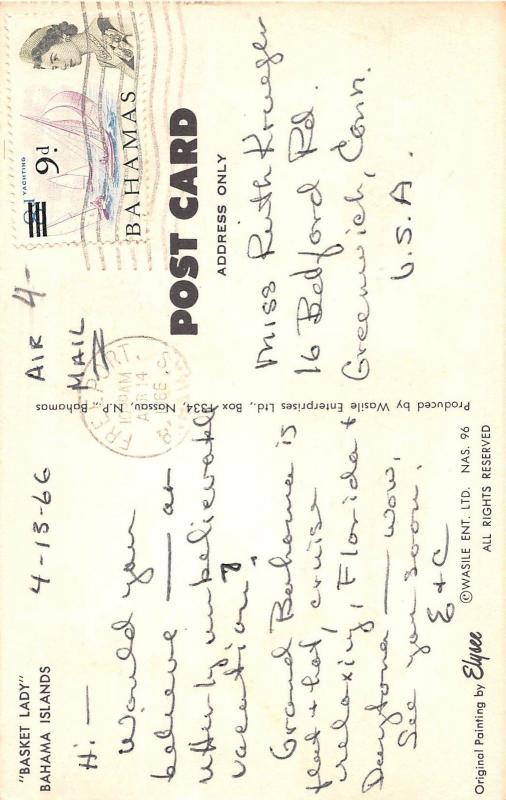 "BASKET LADY"
BAHAMA ISLANDS
4-13-66
Hi —
Would you
believe — an
utterly unbelievable
vacation?
Grand Bahama is
flat & hot, cruise
relaxing, Florida &
Daytona — wow.
See you soon.
E & C
Original Painting by Elysee
©WASILE ENT. LTD. NAS. 96
ALL RIGHTS RESERVED
Produced by Wasile Enterprises Ltd., Box 1334, Nassau, N.P., Bahamas
AIR
MAIL
4-
FREEPORT.
AM
14
66
POST CARD
ADDRESS ONLY
YACHTING
9d
BAHAMAS
Miss Ruth Krueger
16 Bedford Rd.
Greenwich, Conn.
U.S.A.